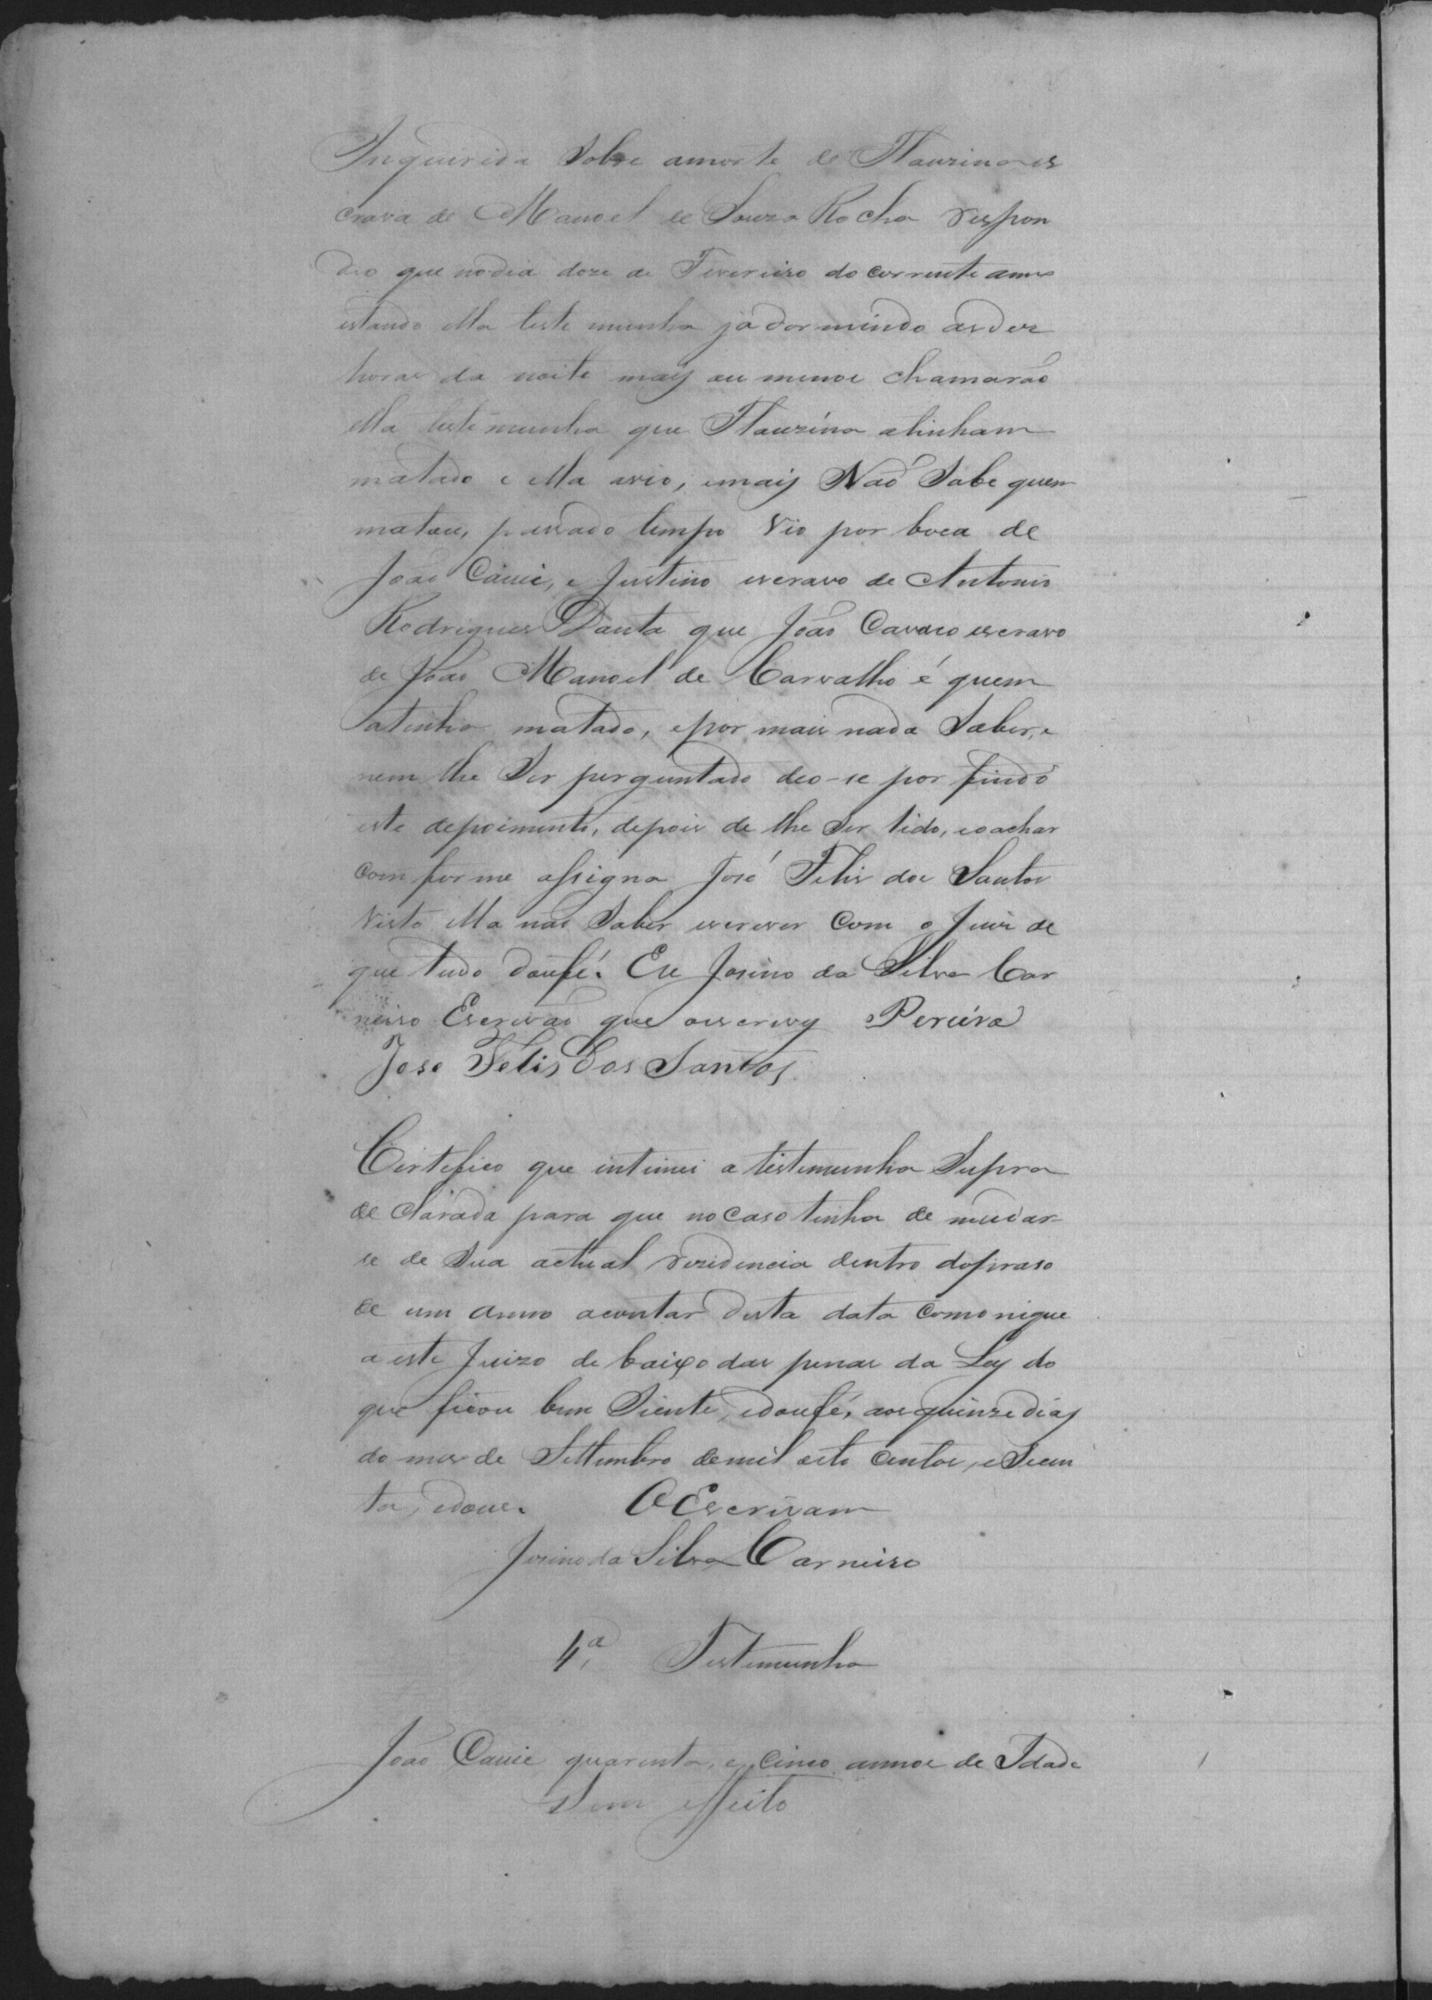 Inquirida Sobre amorte de Flaurina es
crava de Manoel de Souza Rocha respon
deo que nodia doze de Fevereiro do corrente anno
estando ella teste munha ja dor mindo as dez
horas da noite mais au menos chamarão
ella teste munha que Flaurina atinham
matado e ella avio, emais Não Sabe quem
matou, passado tempo vio por boca de
João Cauié, e Justino escravo de Antonio
Rodrigues Danta que João Cavaco escravo
de João Manoel de Carvalho é quem
atinha matado, epor mais nada Saber, e
nem lhe Ser perguntado deo-se por findo
este depoimento, depois de lhe Ser lido, eoachar
com forme assigna José Felis dos Santos
visto ella não Saber escrever Com o Juiz de
que tudo doufé. Eu Josino da Silva Car
neiro Escrivão que oescrevy Pereira
Jose Felis dos Santos
Certefico que intimei a testemunha Supra
de Clarada para que nocaso tenha de mudar-
se de Sua actual rezidencia dentro doprazo
de um anno acontar desta data Comonique
a este Juizo de baixo das penas da Ley do
que ficou bem Siente, edoufé, aos quinze dias
do mes de Settembro demil oito centos, e Secen
ta, edous. OEscrivam
Josino da Silva Carneiro
4.ª Testemunha
João Cauié quarenta, e cinco annos de Idade
Sem effeito